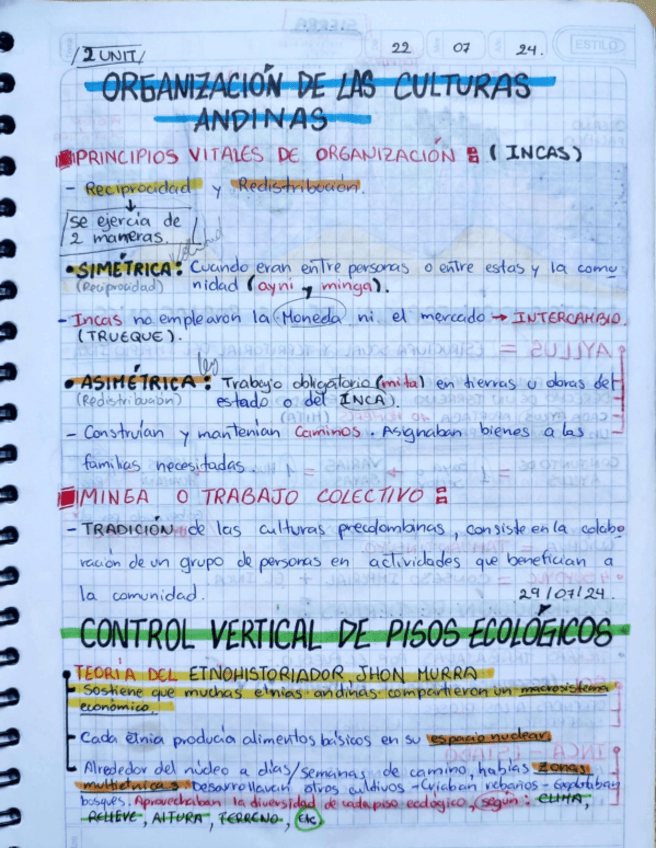 SIERRA
/2 UNIT/ 22 07 24. ESTILO
ORGANIZACIÓN DE LAS CULTURAS
ANDINAS
PRINCIPIOS VITALES DE ORGANIZACIÓN : (INCAS)
- Reciprocidad y Redistribución.
se ejercía de
2 maneras.
• SIMÉTRICA: Cuando eran entre personas o entre estas y la comu
(Reciprocidad) nidad (ayni y minga).
- Incas no emplearon la Moneda ni el mercado → INTERCAMBIO.
(TRUEQUE).
ley
• ASIMÉTRICA: Trabajo obligatorio (mita) en tierras u obras del
(Redistribución) estado o del INCA).
- Construían y mantenían caminos. Asignaban bienes a las
familias necesitadas.
MINGA O TRABAJO COLECTIVO :
- TRADICIÓN de las culturas precolombanas, consiste en la colabo
ración de un grupo de personas en actividades que benefician a
la comunidad. 29/07/24.
CONTROL VERTICAL DE PISOS ECOLÓGICOS
• TEORÍA DEL ETNOHISTORIADOR, JHON MURRA
- Sostiene que muchas etnias andinas compartieron un macrosistema
económico.
- Cada etnia producía alimentos básicos en su espacio nuclear.
- Alrededor del núcleo a días/semanas de camino, habías zonas
multietnicas Desarrollavan otros cultivos - Cuidaban rebaños - Explotaban
bosques. Aprovechaban la diversidad de cada piso ecológico, según: CLIMA,
RELIEVE, ALTURA, TERRENO, Etc